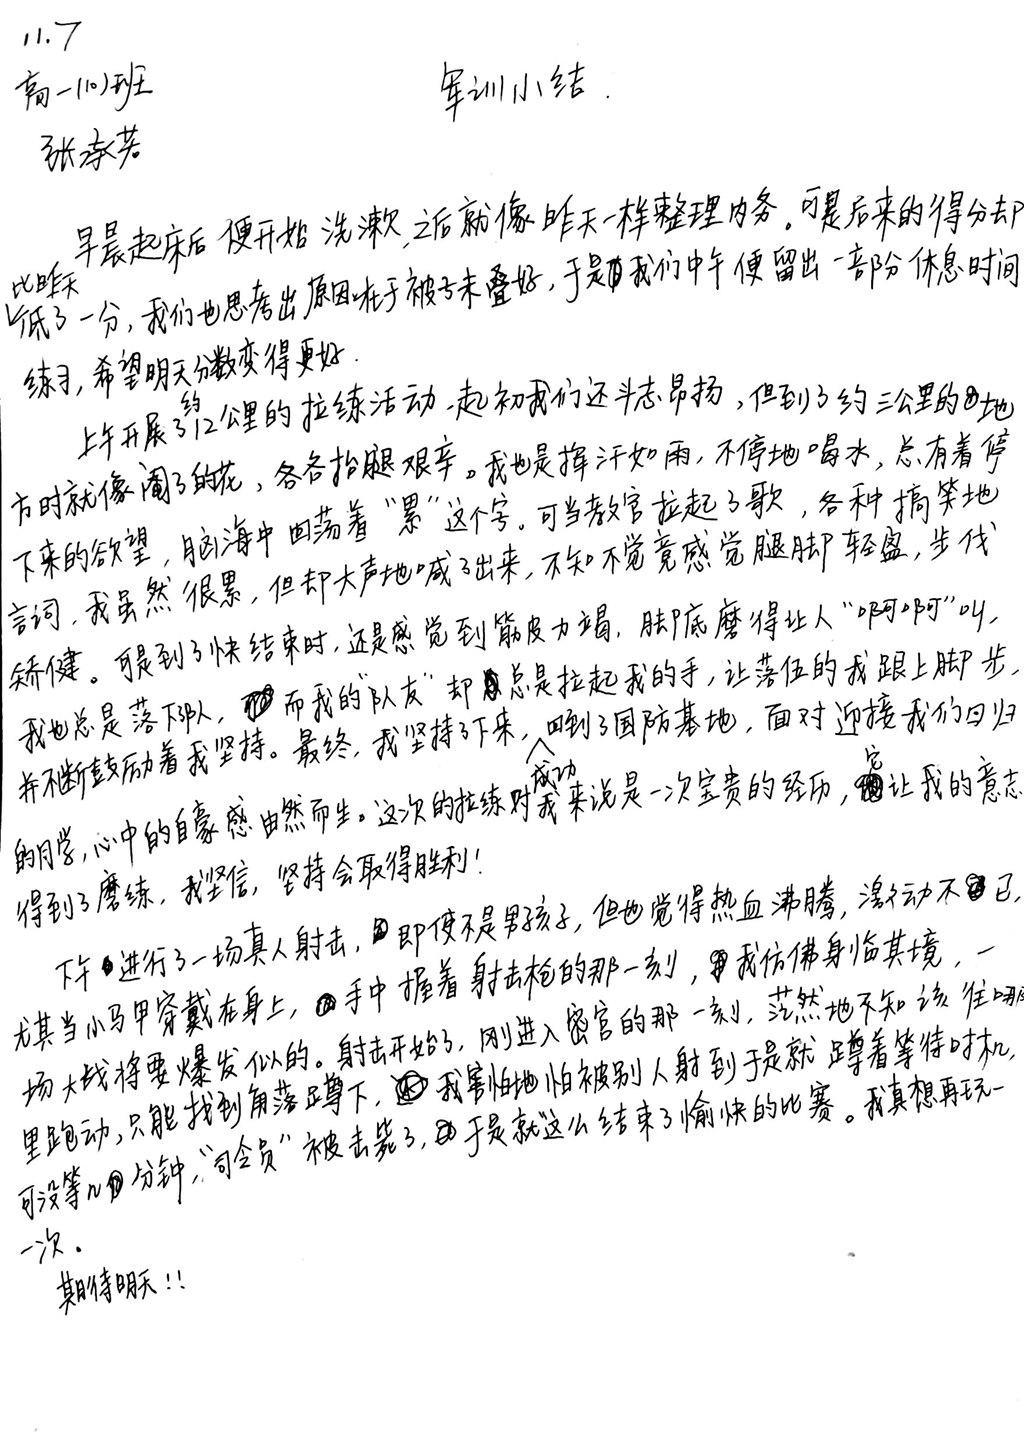 11.7
高一(10)班
军训小结.
张承芸
早晨起床后便开始洗漱,之后就像昨天一样整理内务。可是后来的得分却
比昨天
低了一分,我们也思考出原因在于被子未叠好,于是我们中午便留出一部分休息时间
练习,希望明天分数变得更好.
上午开展了约12公里的拉练活动,起初我们还斗志昂扬,但到了约三公里的地
方时就像阉了的花,各各抬腿艰辛。我也是挥汗如雨,不停地喝水,总有着停
下来的欲望,脑海中回荡着“累”这个字。可当教官拉起了歌,各种搞笑地
言词,我虽然很累,但却大声地喊了出来,不知不觉竟感觉腿脚轻盈,步伐
矫健。可是到了快结束时,还是感觉到筋皮力竭,脚底磨得让人“啊啊”叫,
我也总是落下队人,而我的“队友”却总是拉起我的手,让落伍的我跟上脚步,
并不断鼓励着我坚持。最终,我坚持了下来,成功回到了国防基地,面对迎接我们回归
的同学,心中的自豪感由然而生。这次的拉练对我来说是一次宝贵的经历,它让我的意志
得到了磨练,我坚信,坚持会取得胜利!
下午进行了一场真人射击,即使不是男孩子,但也觉得热血沸腾,激动不已,
尤其当小马甲穿戴在身上,手中握着射击枪的那一刻,我仿佛身临其境,一
场大战将要爆发似的。射击开始了,刚进入密宫的那一刻,茫然地不知该往哪
里跑动,只能找到角落蹲下,我害怕地怕被别人射到于是就蹲着等待时机,
可没等几分钟,“司令员”被击毙了,于是就这么结束了愉快的比赛。我真想再玩一
一次。
期待明天!!